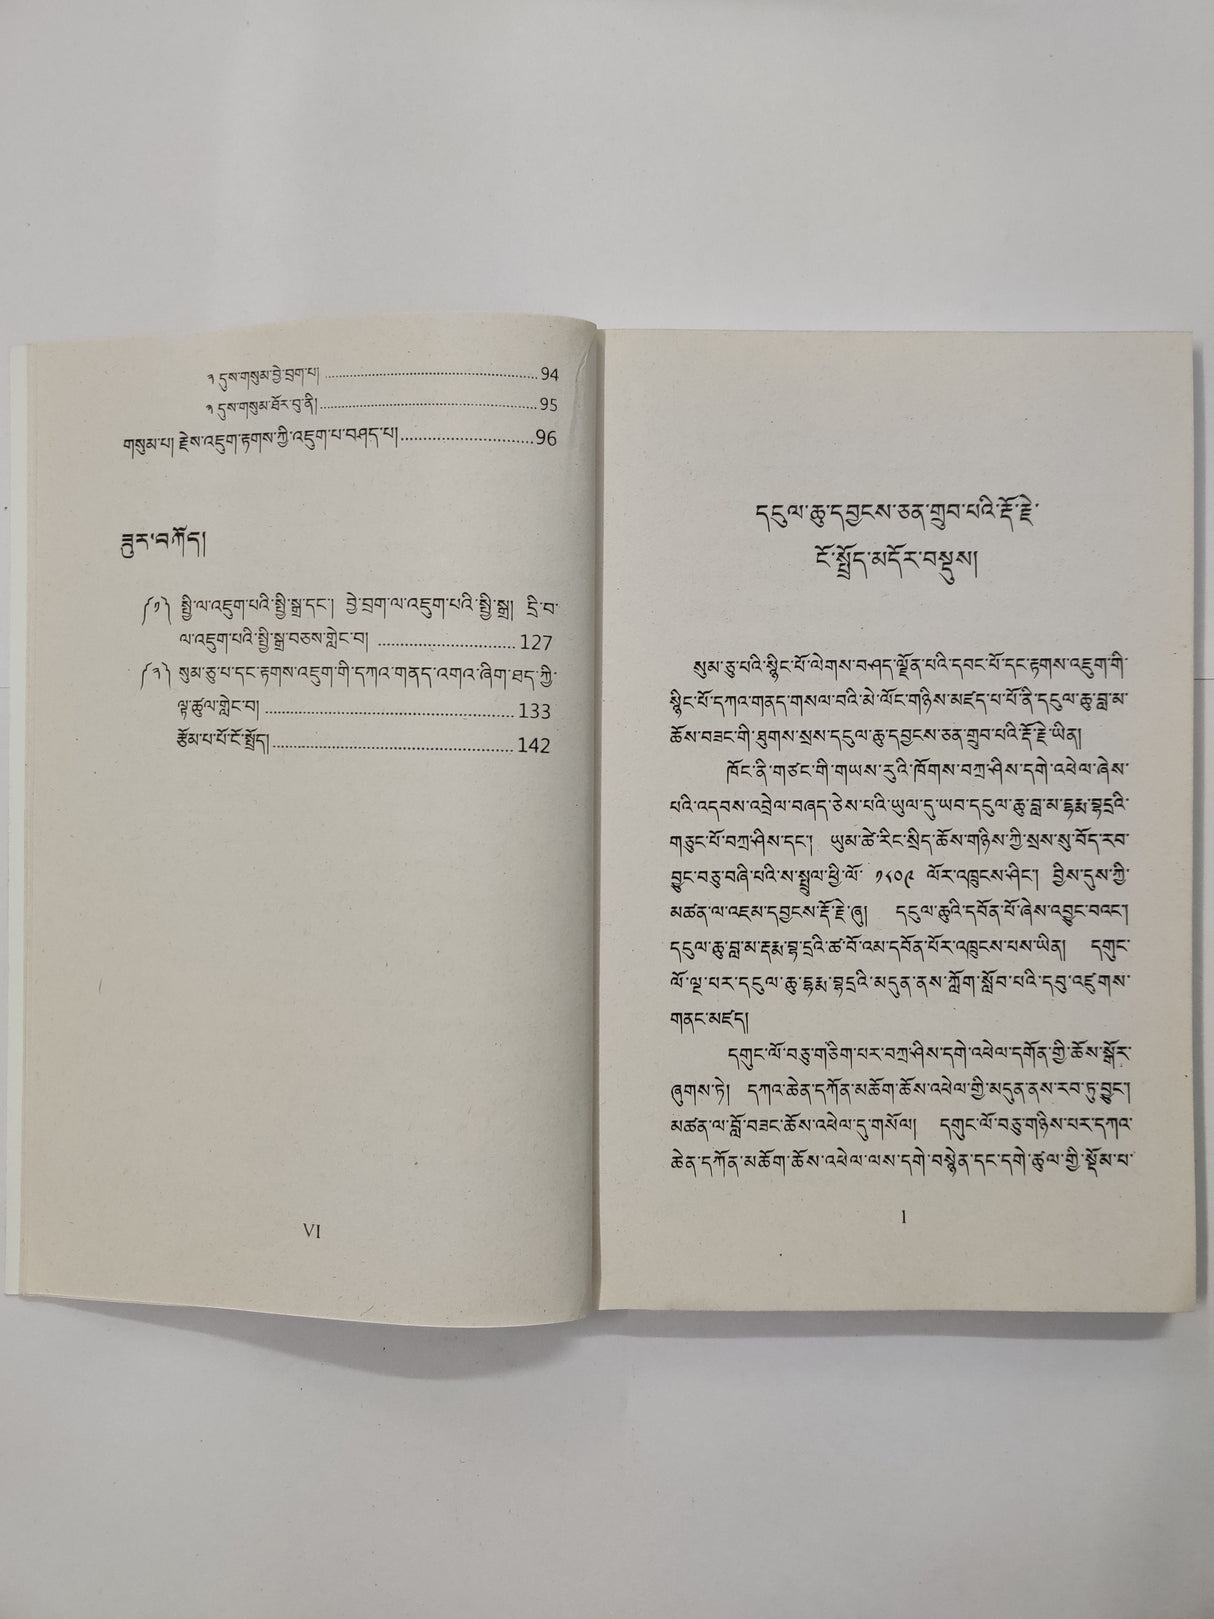 ༢ དུས་གསུམ་བྱེ་བྲག་པ། ........................................................94
༣ དུས་གསུམ་ཐོར་བུ་ནི།.........................................................95
གསུམ་པ། རྗེས་འཇུག་རྟགས་ཀྱི་འཇུག་པ་བཤད་པ།.............................96
ཟུར་བཀོད།
(༡) སྤྱི་ལ་འཇུག་པའི་སྤྱི་སྒྲ་དང་། བྱེ་བྲག་ལ་འཇུག་པའི་སྤྱི་སྒྲ། དྲི་བ་
ལ་འཇུག་པའི་སྤྱི་སྒྲ་བཅས་གླེང་བ། ..............................127
(༢) སུམ་ཅུ་པ་དང་རྟགས་འཇུག་གི་དཀའ་གནད་འགའ་ཞིག་ཐད་ཀྱི་
ལྟ་ཚུལ་གླེང་བ། .....................................................133
རྩོམ་པ་པོ་ངོ་སྤྲོད།....................................................142
VI
དངུལ་ཆུ་དབྱངས་ཅན་གྲུབ་པའི་རྡོ་རྗེ་
ངོ་སྤྲོད་མདོར་བསྡུས།
སུམ་ཅུ་པའི་སྙིང་པོ་ལེགས་བཤད་ལྗོན་པའི་དབང་པོ་དང་རྟགས་འཇུག་གི་
སྙིང་པོ་དཀའ་གནད་གསལ་བའི་མེ་ལོང་གཉིས་མཛད་པ་པོ་ནི་དངུལ་ཆུ་བླ་མ་
ཆོས་བཟང་གི་ཐུགས་སྲས་དངུལ་ཆུ་དབྱངས་ཅན་གྲུབ་པའི་རྡོ་རྗེ་ཡིན།
ཁོང་ནི་གཙང་གི་གཡས་རུའི་ཁོགས་བཀྲ་ཤིས་དགེ་འཕེལ་ཞེས་
པའི་འདབས་འབྲེལ་བཞད་ཅེས་པའི་ཡུལ་དུ་ཡབ་དངུལ་ཆུ་བླ་མ་དྷརྨ་བྷདྲའི་
གཅུང་པོ་བཀྲ་ཤིས་དང་། ཡུམ་ཚེ་རིང་སྲིད་ཆོས་གཉིས་ཀྱི་སྲས་སུ་བོད་རབ་
བྱུང་བཅུ་བཞི་པའི་ས་སྦྲུལ་ཕྱི་ལོ་ ༡༨༠༩ ལོར་འཁྲུངས་ཤིང་། བྱིས་དུས་ཀྱི་
མཚན་ལ་འཇམ་དབྱངས་རྡོ་རྗེ་ཞུ། དངུལ་ཆུའི་དབོན་པོ་ཞེས་འབྱུང་བའང་།
དངུལ་ཆུ་བླ་མ་དརྨ་བྷ་དྲའི་ཚ་བོ་འམ་དབོན་པོར་འཁྲུངས་པས་ཡིན། དགུང་
ལོ་ལྔ་པར་དངུལ་ཆུ་དྷརྨ་བྷདྲའི་མདུན་ནས་ཀློག་སློབ་པའི་དབུ་འཛུགས་
གནང་མཛད།
དགུང་ལོ་བཅུ་གཅིག་པར་བཀྲ་ཤིས་དགེ་འཕེལ་དགོན་གྱི་ཆོས་སྒོར་
ཞུགས་ཏེ། དཀའ་ཆེན་དཀོན་མཆོག་ཆོས་འཕེལ་གྱི་མདུན་ནས་རབ་ཏུ་བྱུང་།
མཚན་ལ་བློ་བཟང་ཆོས་འཕེལ་དུ་གསོལ། དགུང་ལོ་བཅུ་གཉིས་པར་དཀའ་
ཆེན་དཀོན་མཆོག་ཆོས་འཕེལ་ལས་དགེ་བསྙེན་དང་དགེ་ཚུལ་གྱི་སྡོམ་པ་
1